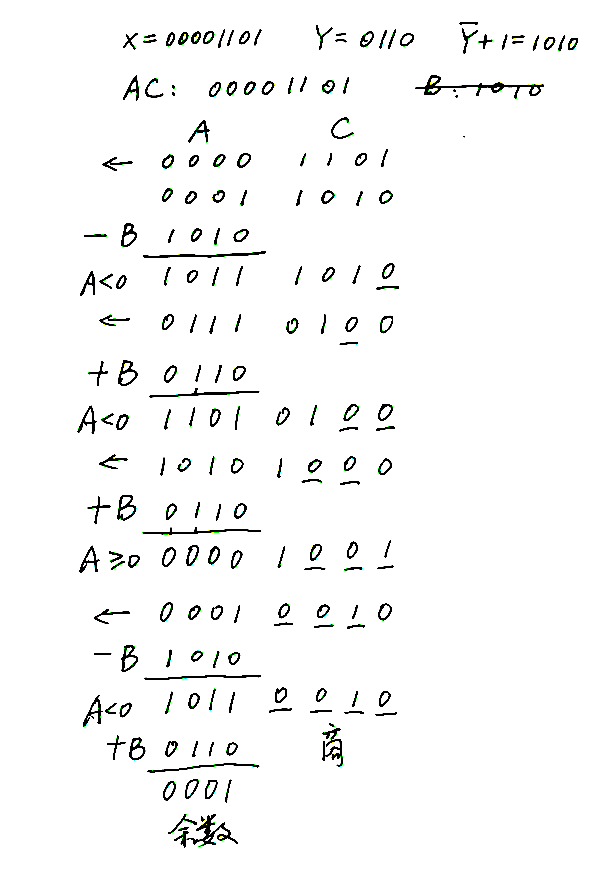 X=00001101 Y=0110 Y̅+1=1010
AC: 00001101 B:1010
A C
← 0000 1101
0001 1010
-B 1010
A<0 1011 1010
← 0111 0100
+B 0110
A<0 1101 0100
← 1010 1000
+B 0110
A≥0 0000 1001
← 0001 0010
-B 1010
A<0 1011 0010
+B 0110 商
0001
余数